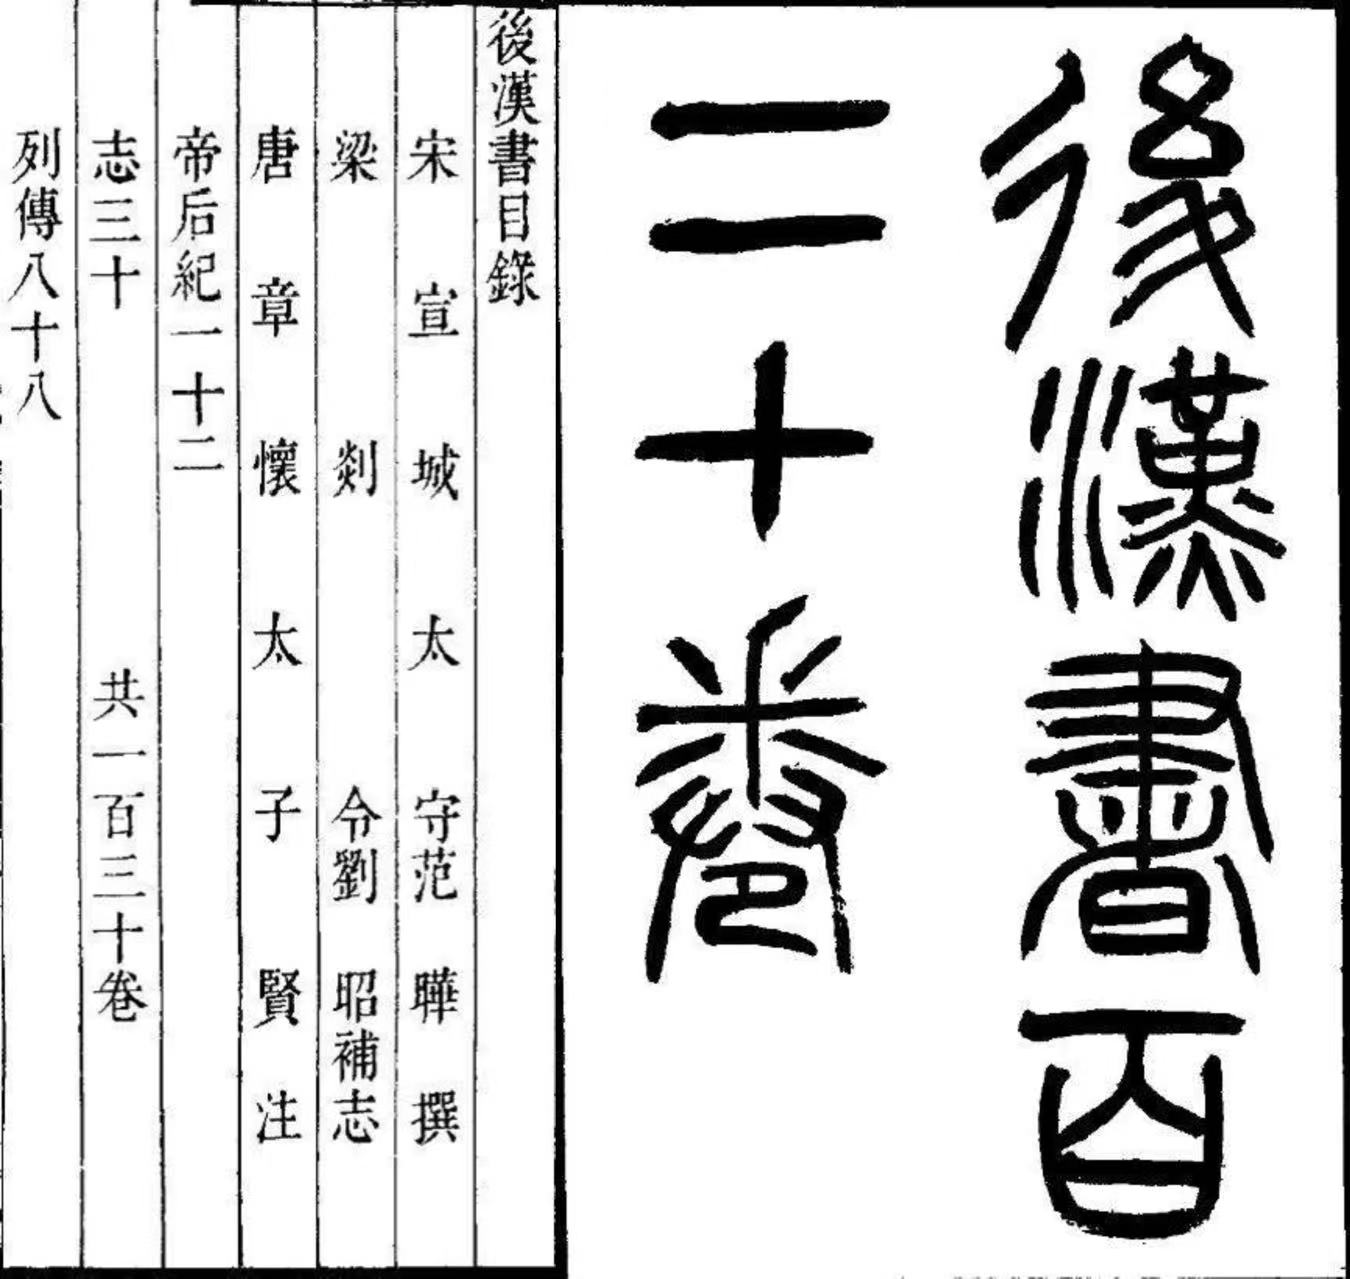 後漢書百
二十卷
後漢書目錄
宋宣城太守范曄撰
梁剡令劉昭補志
唐章懷太子賢注
帝后紀一十二
志三十 共一百三十卷
列傳八十八